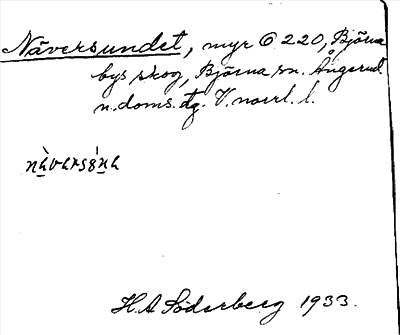 Näversundet, myr Ⓞ 220, Björna
bys skog, Björna sn. Ångerml.
n. doms. dg. V. norrl. l.
H.A. Söderberg 1933.